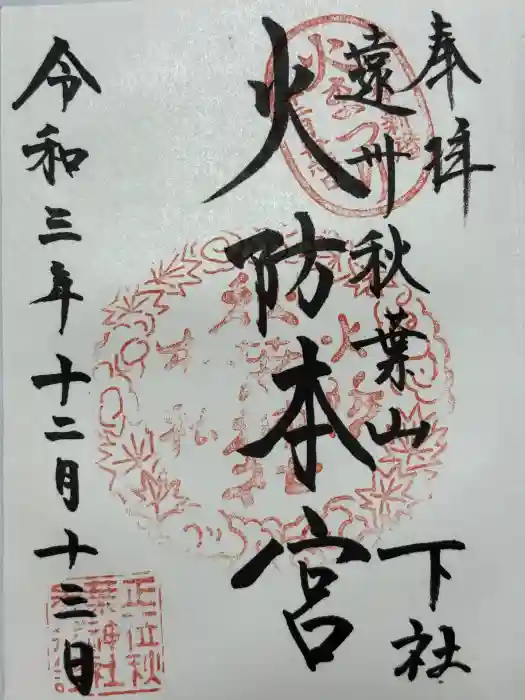 奉拝
下社
遠州秋葉山
火防本宮
令和三年十二月十三日
正一位秋
葉神社